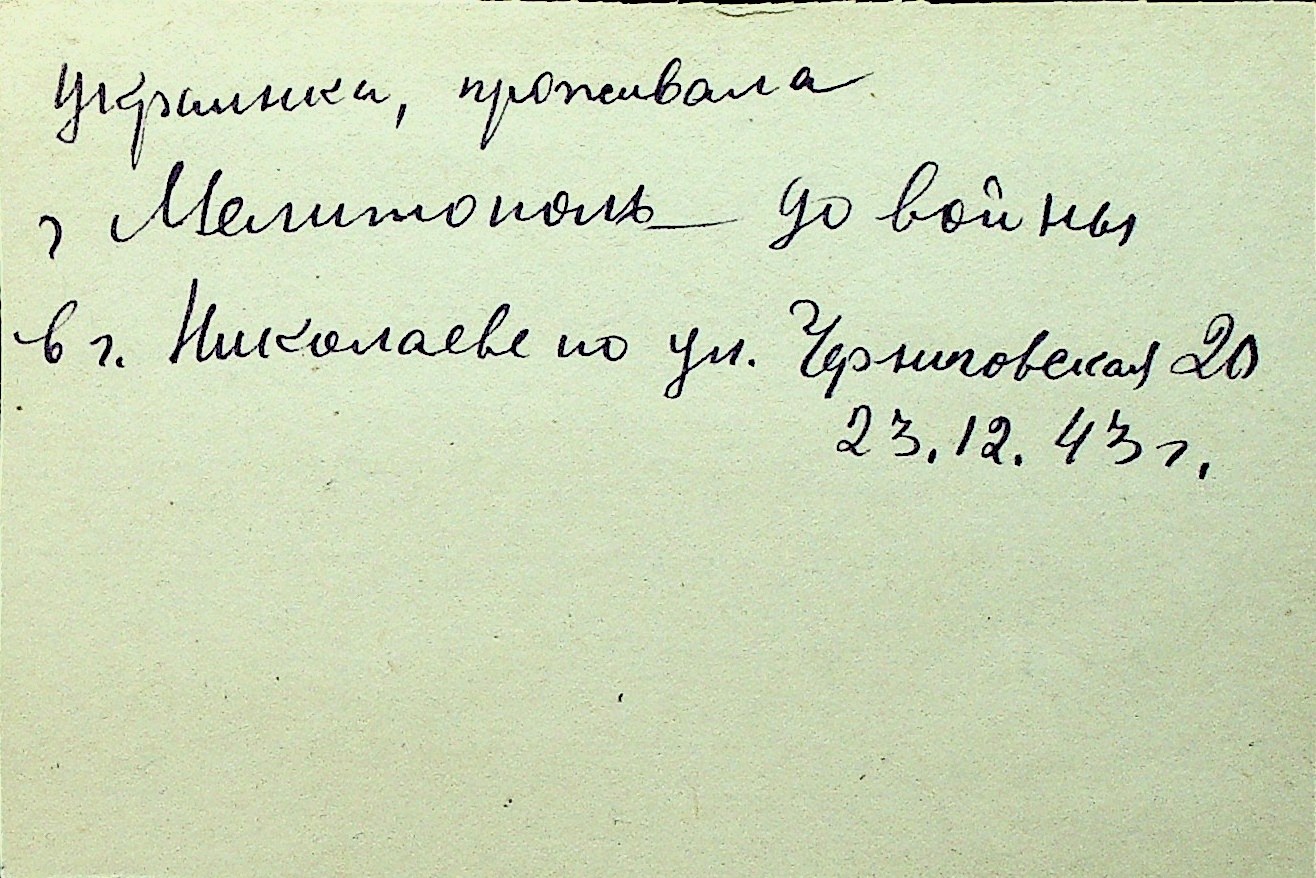 Украинка, проживала
г Мелитополь до войны
в г. Николаеве по ул. Черниговская 20
23.12.43 г.